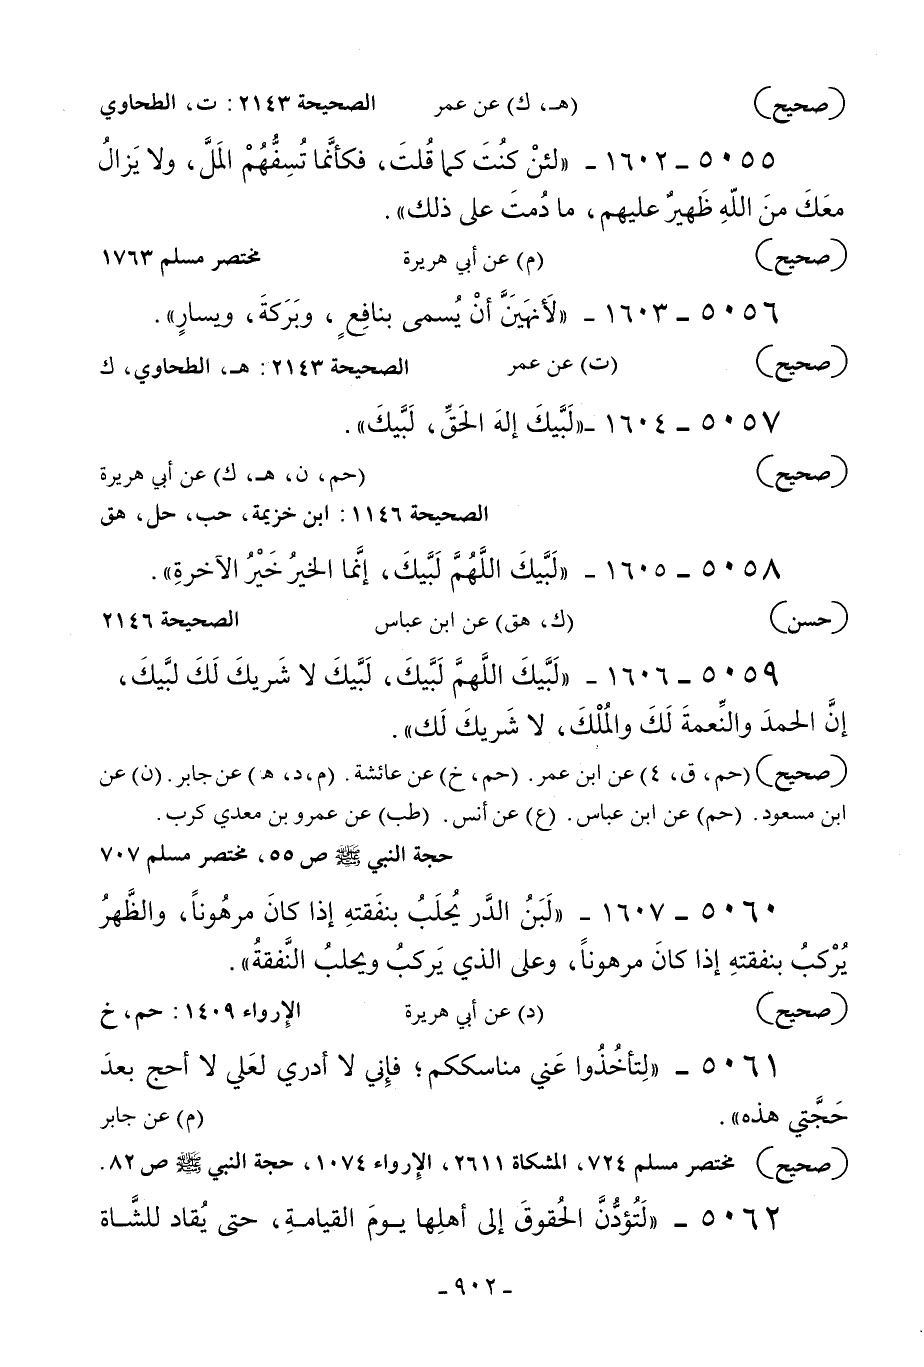 (صحيح) (هـ، ك) عن عمر الصحيحة ٢١٤٣: ت، الطحاوي
٥٠٥٥ ـ ١٦٠٢ ـ «لئنْ كنُتَ كما قُلتَ، فكأنَّما تُسِفُّهُمْ المَلَّ، ولا يَزالُ
معَكَ منَ اللّهِ ظَهيرٌ عليهم، ما دُمتَ على ذلك».
(صحيح) (م) عن أبي هريرة مختصر مسلم ١٧٦٣
٥٠٥٦ ـ ١٦٠٣ ـ «لَأنهَيَنَّ أنْ يُسمى بنافِعٍ، وبَرَكةَ، ويسارٍ».
(صحيح) (ت) عن عمر الصحيحة ٢١٤٣: هـ، الطحاوي، ك
٥٠٥٧ ـ ١٦٠٤ ـ«لَبَّيكَ إلهَ الحَقِّ، لَبَّيكَ».
(صحيح) (حم، ن، هـ، ك) عن أبي هريرة
الصحيحة ١١٤٦: ابن خزيمة، حب، حل، هق
٥٠٥٨ ـ ١٦٠٥ ـ «لَبَّيكَ اللَّهُمَّ لَبَّيكَ، إنَّما الخيرُ خَيْرُ الآخرةِ».
(حسن) (ك، هق) عن ابن عباس الصحيحة ٢١٤٦
٥٠٥٩ ـ ١٦٠٦ ـ «لَبَّيكَ اللَّهمَّ لَبَّيكَ، لَبَّيكَ لا شَريكَ لَكَ لبَّيكَ،
إنَّ الحمدَ والنِّعمةَ لَكَ والمُلْكَ، لا شَريكَ لَك».
(صحيح) (حم، ق، ٤) عن ابن عمر. (حم، خ) عن عائشة. (م، د، هـ) عن جابر. (ن) عن
ابن مسعود. (حم) عن ابن عباس. (ع) عن أنس. (طب) عن عمرو بن معدي كرب.
حجة النبي ﷺ ص ٥٥، مختصر مسلم ٧٠٧
٥٠٦٠ ـ ١٦٠٧ ـ «لَبَنُ الدَّر يُحلَبُ بنفَقتهِ إذا كانَ مرهُوناً، والظَّهرُ
يُرْكبُ بنفقتهِ إذا كانَ مرهوناً، وعلى الذي يَركبُ ويحلبُ النَّفقةُ».
(صحيح) (د) عن أبي هريرة الإرواء ١٤٠٩: حم، خ
٥٠٦١ ـ «لِتأخُذُوا عَني مناسككم؛ فإِني لا أدري لعَلي لا أحج بعدَ
حَجَّتي هذه». (م) عن جابر
(صحيح) مختصر مسلم ٧٢٤، المشكاة ٢٦١١، الإرواء ١٠٧٤، حجة النبي ﷺ ص ٨٢.
٥٠٦٢ ـ «لَتُؤدُّنَّ الحُقوقَ إلى أهلِها يومَ القيامةِ، حتى يُقاد للشَّاة
ـ ٩٠٢ ـ